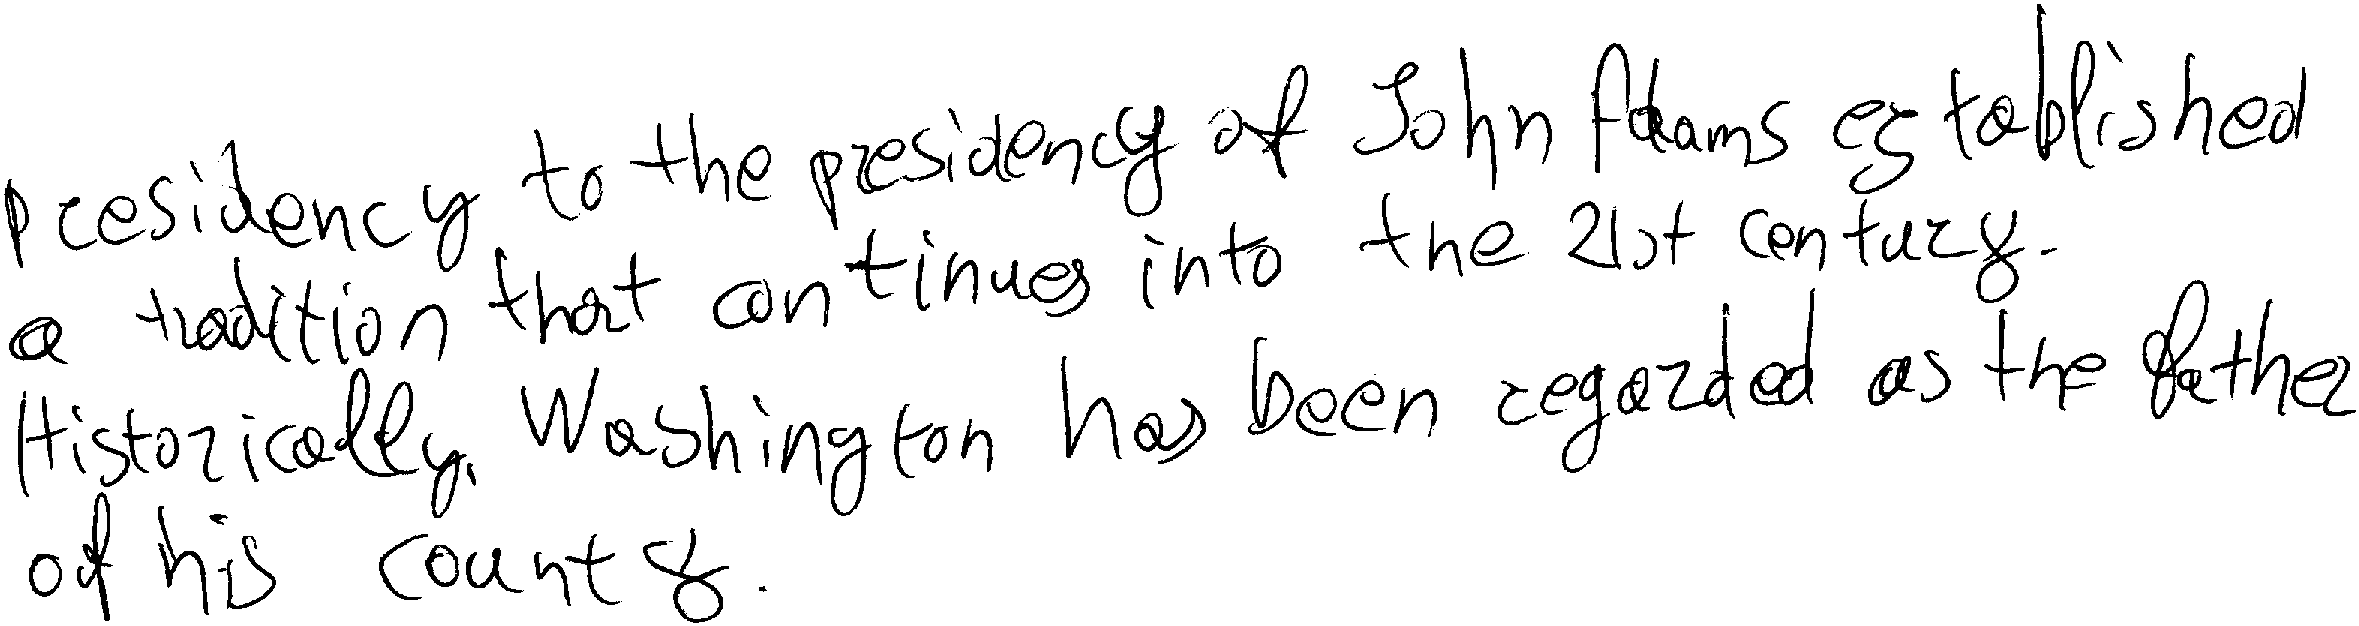 presidency to the presidency of John Adams established
a tradition that continues into the 21st century.
Historically, Washington has been regarded as the father
of his county.